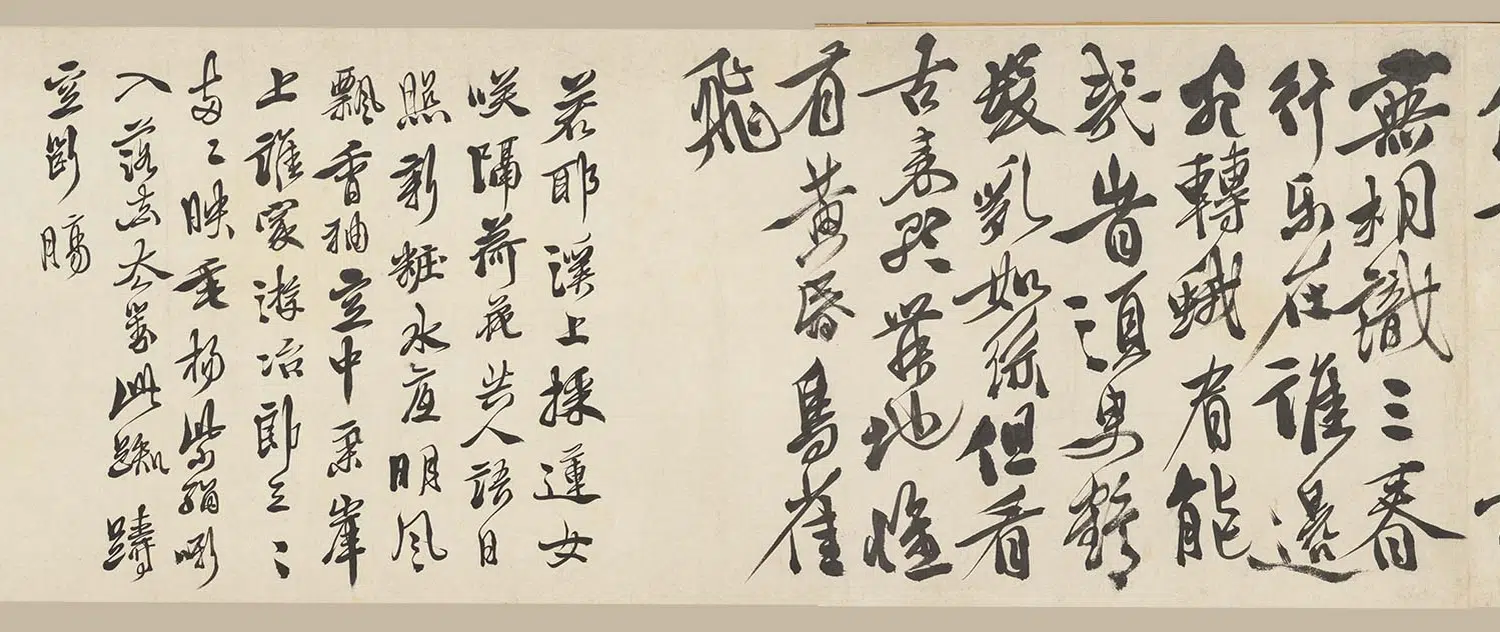 無相識三春
行樂在誰邊
宛轉蛾眉能
幾旹須臾鶴
髮亂如絲但看
古來歌舞地惟
有黃昏鳥雀
飛
若耶溪上採蓮女
咲隔荷花共人語日
照新粧水底明風
飄香袖空中舉岸
上誰家游冶郎三〻
五〻映垂楊紫騮嘶
入落花去見此踟躕
空斷腸